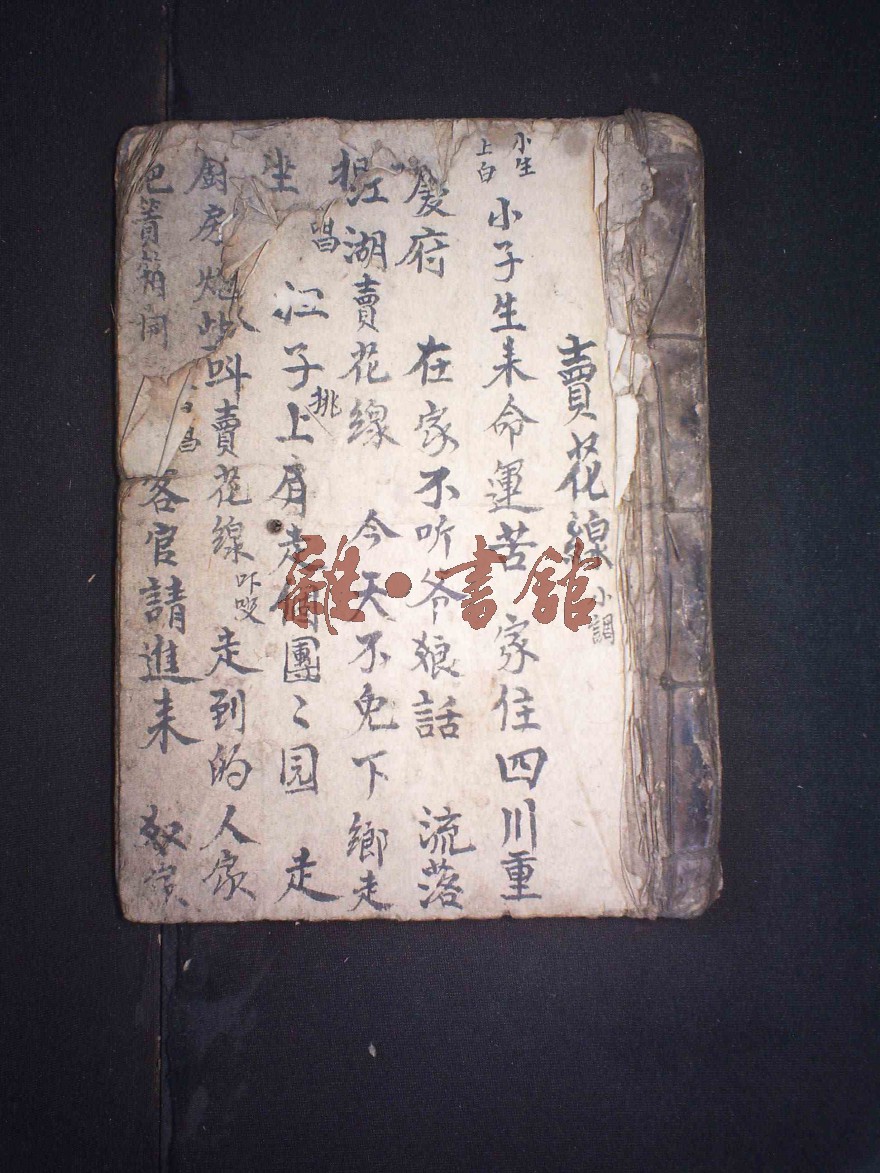 賣花線 小調
小生上白 小子生来命運苦 家住四川重
慶府 在家不听爷娘話 流落
江湖賣花線 今天不免下鄉走
坐 昌 扛子上挑肩走個團〻园 走
厨房 叫賣花線 吓哎 走到的人家
昌 客官請進来 奴家
雒·書館